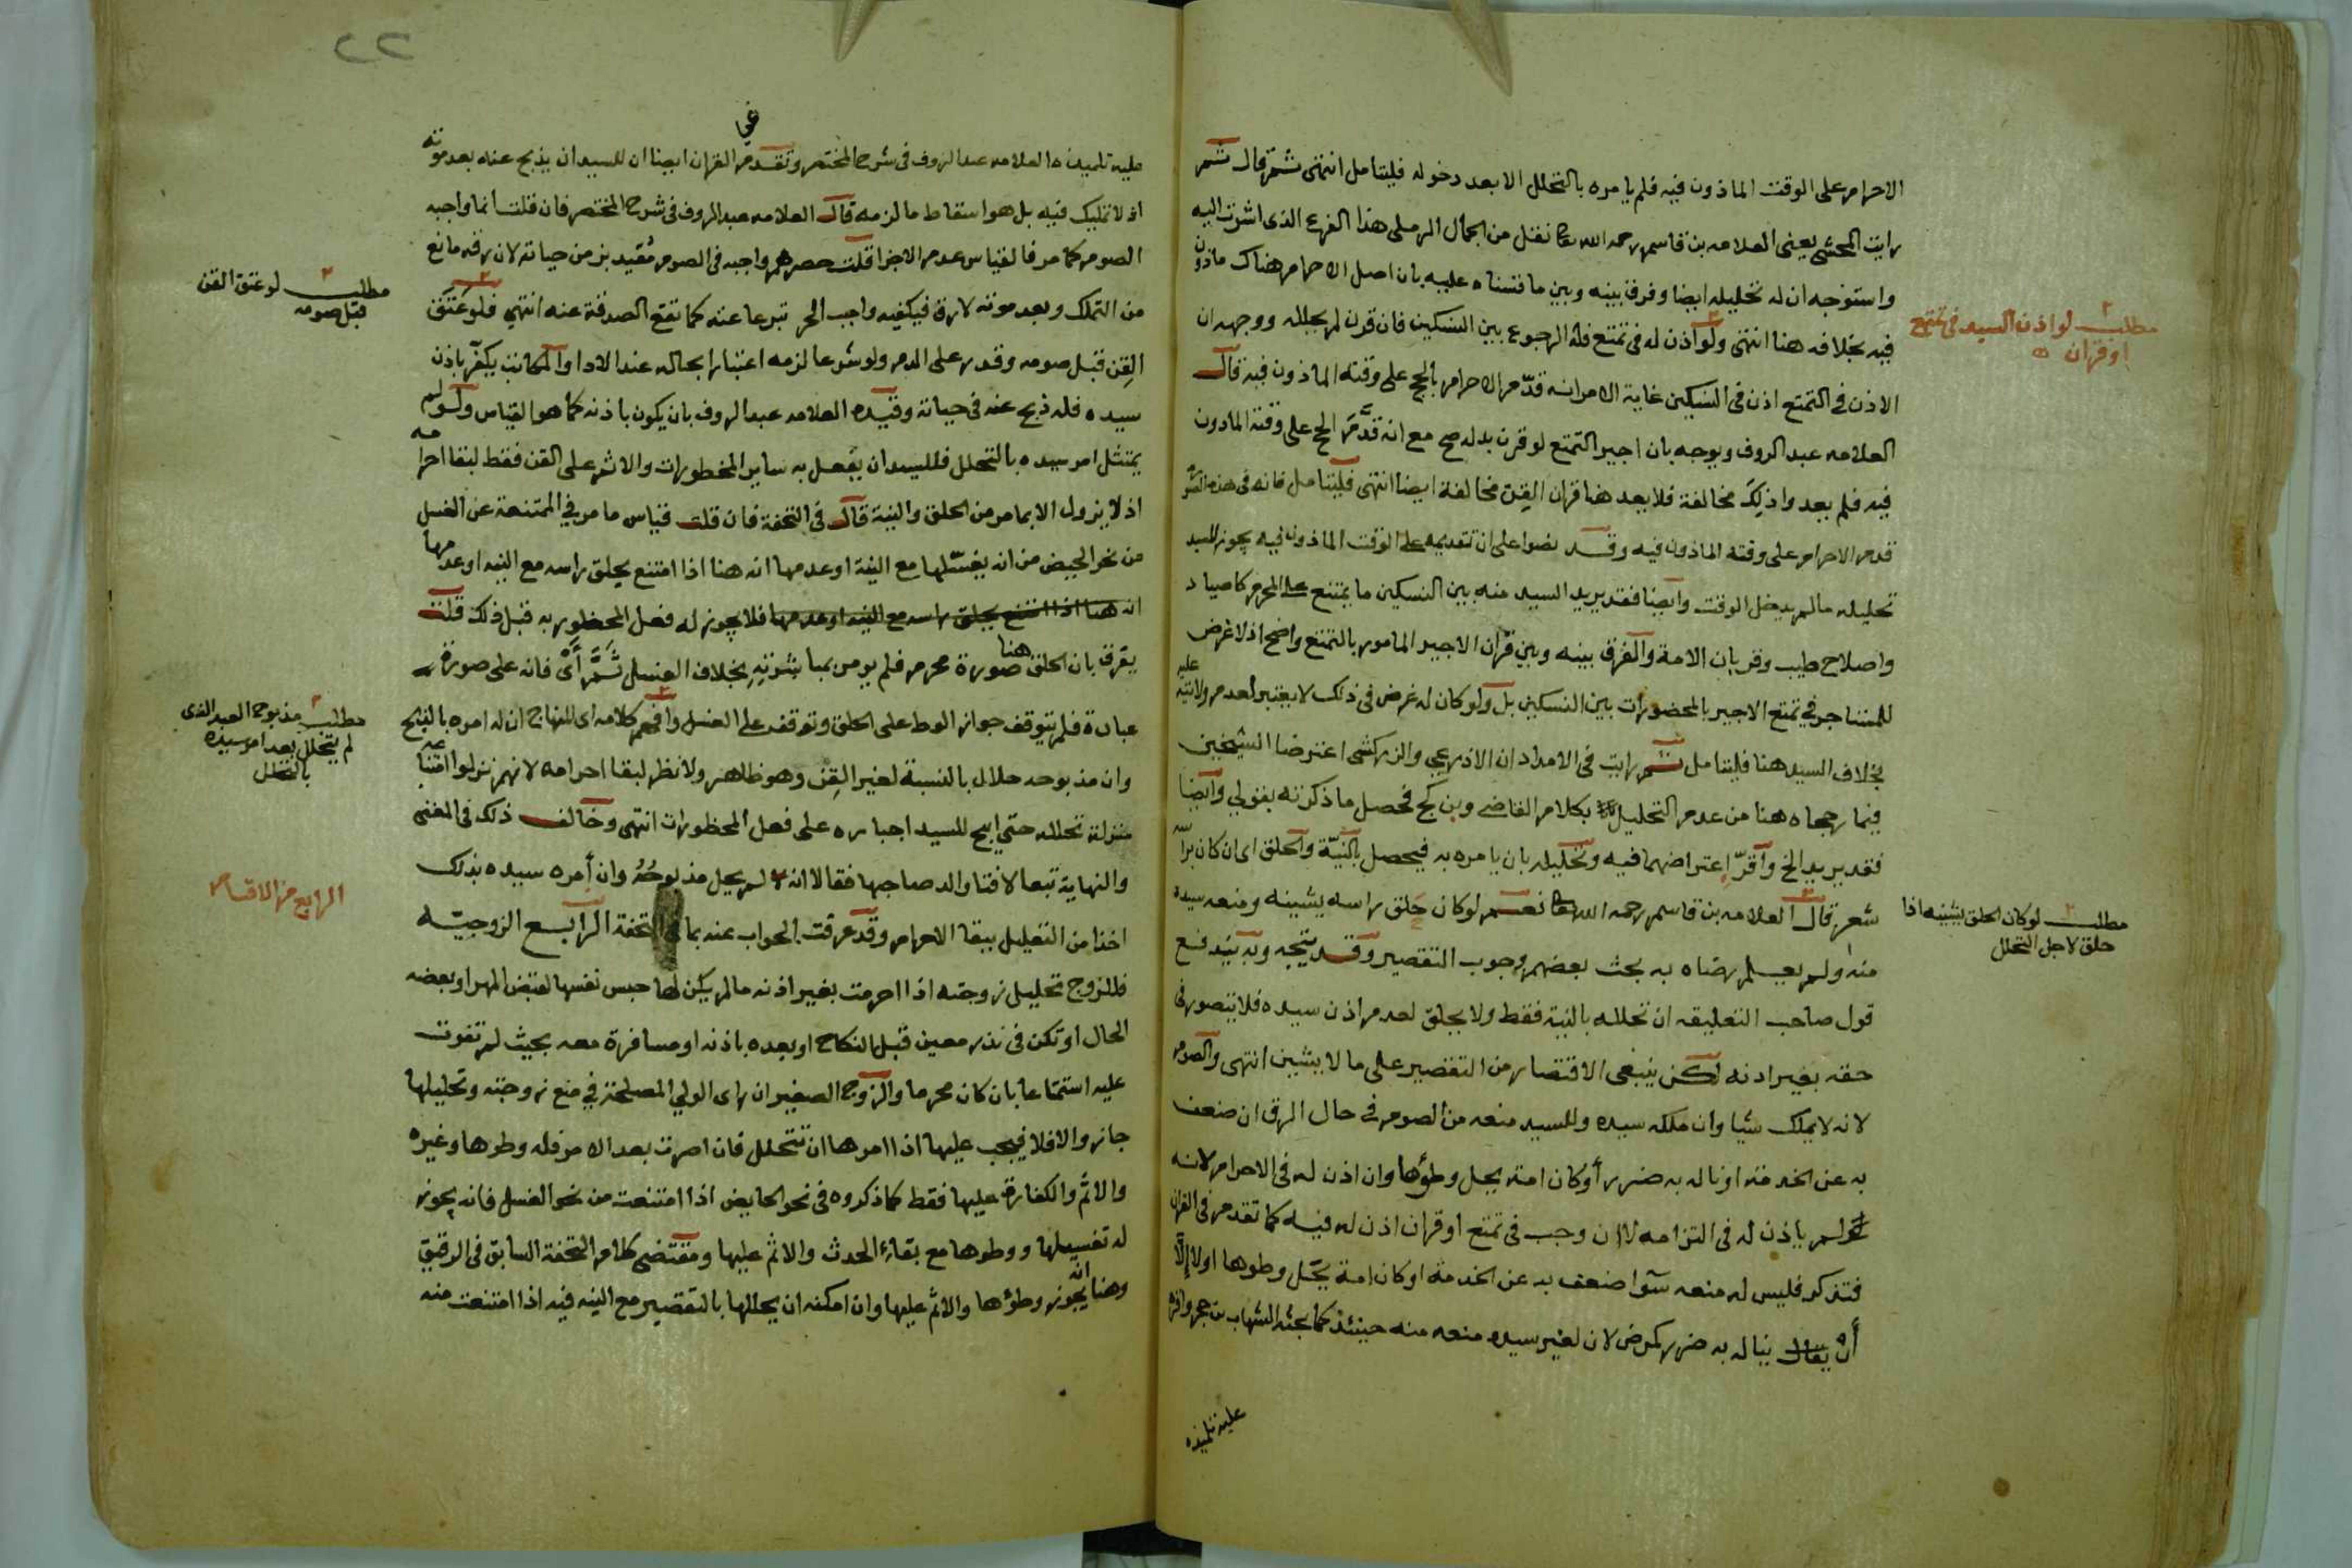 الاحرام على الوقت الماذون فيه فلم يامره بالتحلل الا بعد دخوله فليتامل انتهى ثم قال ثم
رايت المحشي يعني العلامه بن قاسم رحمه الله تعا نقل من الجمال الرملي هذا الفرع الذي اشرت اليه
واستوجه ان له تحليله ايضا وفرق بينه وبين ما قسناه عليه بان اصل الاحرام هناك ماذون
فيه بخلافه هنا انتهى ولو اذن له في تمتع فله الرجوع بين النسكين فان قرن لم يحلله ووجهه ان
مطلب لو اذن السيد في تمتع
او قران
الاذن في التمتع اذن في النسكين غاية الامر انه قدم الاحرام بالحج على وقته الماذون فيه قال
العلامه عبد الروف ويوجه بان اجير التمتع لو قرن بدله صح مع انه قدم الحج على وقته الماذون
فيه فلم يعد واذلك مخالفة فلا يعد هنا قران القن مخالفة ايضا انتهى فليتامل فانه في هذه
قدم الاحرام على وقته الماذون فيه وقد نصوا على ان تقديمه على الوقت الماذون فيه يجوز للسيد
تحليله مالم يدخل الوقت وايضا فقد يريد السيد منه بين النسكين ما يمتنع على المحرم كاصياد
واصلاح طيب وقربان الامة والفرق بينه وبين قران الاجير المامور بالتمتع واضح اذ لا غرض
للمستاجر في تمتع الاجير بالمحضورات بين النسكين بل ولو كان له غرض في ذلك لا يعتبر لعدم ولايته عليه
بخلاف السيد هنا فليتامل ثم رايت في الامداد ان الاذرعي والزركشي اعترضا الشيخين
فيما رجحاه هنا من عدم التحليل بكلام القاضي وبن كج فحصل ما ذكرته بقولي وايضا
فقد يريد الخ واقر اعتراضهما فيه وتحليله بان يامره به فيحصل بالنية والحلق اي ان كان براسه
شعر قال العلامه بن قاسم رحمه الله تعا نعم لو كان حلق راسه يشينه ومنعه سيده
مطلب لو كان الحلق يشينه اذا
حلق لاجل التحلل
منه او لم يعلم رضاه به بحث بعضهم وجوب التقصير وقد يتجه وبه يندفع
قول صاحب التعليقه ان تحلله بالنية فقط ولا يحلق لعدم اذن سيده فلا يتصور في
حقه بغير اذنه لكن ينبغي الاقتصار من التقصير على ما لا يشين انتهى والصوم
لانه لا يملك شيا وان ملكه سيده وللسيد منعه من الصوم في حال الرق ان ضعف
به عن الخدمة او ناله به ضرر أو كان امة يحل وطؤها وان اذن له في الاحرام لانه
لم ياذن له في التزامه لا ان وجب في تمتع او قران اذن له فيه كما تقدم في القران
فتذكر فليس له منعه سوا ضعف به عن الخدمة او كان امة يحل وطوها او لا إلّا
أن يناله به ضرر كمرض لان لغير سيده منعه منه حينئذ كما بحثه الشهاب بن حجر واقره
عليه تلميذه
عليه تلميذه العلامه عبد الروف في شرح المختصر وتقدم في القران ايضا ان للسيد ان يذبح عنه بعد موته
اذ لا تمليك فيه بل هو اسقاط ما لزمه قال العلامه عبد الروف في شرح المختصر فان قلت انما واجبه
الصوم كما مر فالقياس عدم الاجزا قلت حصرهم واجبه في الصوم مقيد بزمن حياته لان رقه مانع
من التملك وبعد موته لا رق فيكفيه واجب الحر تبرعا عنه كما تقع الصدقة عنه انتهى فلو عتق
مطلب لو عتق القن
قبل صومه
القن قبل صومه وقدر على الدم ولو شرعا لزمه اعتبارا بحاله عند الادا والمكاتب يكفر باذن
سيده فله ذبح عنه في حياته وقيده العلامه عبد الروف بان يكون باذنه كما هو القياس ولو لم
يمتثل امر سيده بالتحلل فللسيد ان يفعل به ساير المحظورات والاثم على القن فقط لبقا احرامه
اذ لا يزول الا بما مر من الحلق والنية قال في التحفة فان قلت قياس ما مر في الممتنعة عن الغسل
من نحو الحيض من انه يغسلها مع النية او عدمها انه هنا اذا امتنع يحلق راسه مع النيه او عدمها
انه هنا اذا امتنع يحلق راسه مع النيه او عدمها فلا يجوز له فعل المحظور به قبل ذلك قلت
يفرق بان الحلق هنا صورة محرم فلم يومر بمباشرته بخلاف الغسل ثَمَّ أَيْ فانه على صورة
عبادة فلم يتوقف جواز الوط على الحلق وتوقف على الغسل وافهم كلامه اي المنهاج ان له امره بالذبح
مطلب مذبوح العبد الذي
لم يتحلل بعد امر سيده
بالتحلل
وان مذبوحه حلال بالنسبة لغير القن وهو ظاهر ولا نظر لبقا احرامه لانهم نزلوا امتناعه
منزلة تحلله حتى ابيح للسيد اجباره على فعل المحظورات انتهى وخالف ذلك في المغني
والنهاية تبعا لافتا والد صاحبها فقالا انه لم يحل مذبوحُهُ وان أمره سيده بذلك
الرابع من الاقسام
اخذا من التعليل ببقا الاحرام وقد عرفت الجواب عنه بما في التحفة الرابع الزوجيه
فللزوج تحليل زوجته اذا احرمت بغير اذنه مالم يكن لها حبس نفسها لقبض المهر او بعضه
الحال او تكن في نذر معين قبل النكاح او بعده باذنه او مسافرة معه بحيث لم تفوت
عليه استمتاعا بان كان محرما والزوج الصغير ان راى الولي المصلحة في منع زوجته وتحليلها
جاز والا فلا فيجب عليها اذا امرها ان تتحلل فان اصرت بعد الامر فله وطوها وغيره
والاثم والكفارة عليها فقط كما ذكروه في نحو الحايض اذا امتنعت من نحو الغسل فانه يجوز
له تغسيلها ووطوها مع بقاء الحدث والاثم عليها ومقتضى كلام التحفة السابق في الرقيق
وهنا انه يجوز وطؤها والاثم عليها وان امكنه ان يحللها بالتقصير مع النيه فيه اذا امتنعت منه